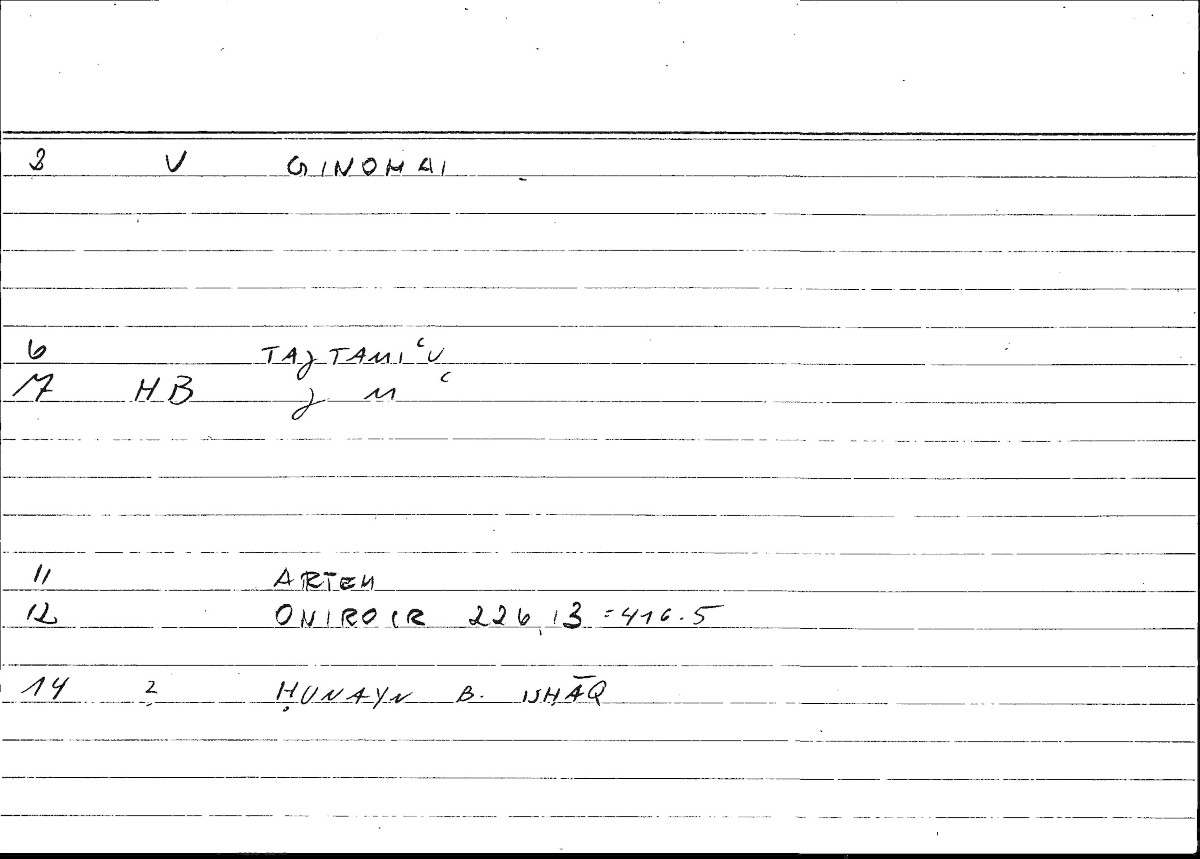 3 V GINOMAI
6 TAJTAMIʿU
7 HB J M ʿ
11 ARTEM
12 ONIROCR 226,13 = 416.5
14 2 ḤUNAYN B. ISHĀQ